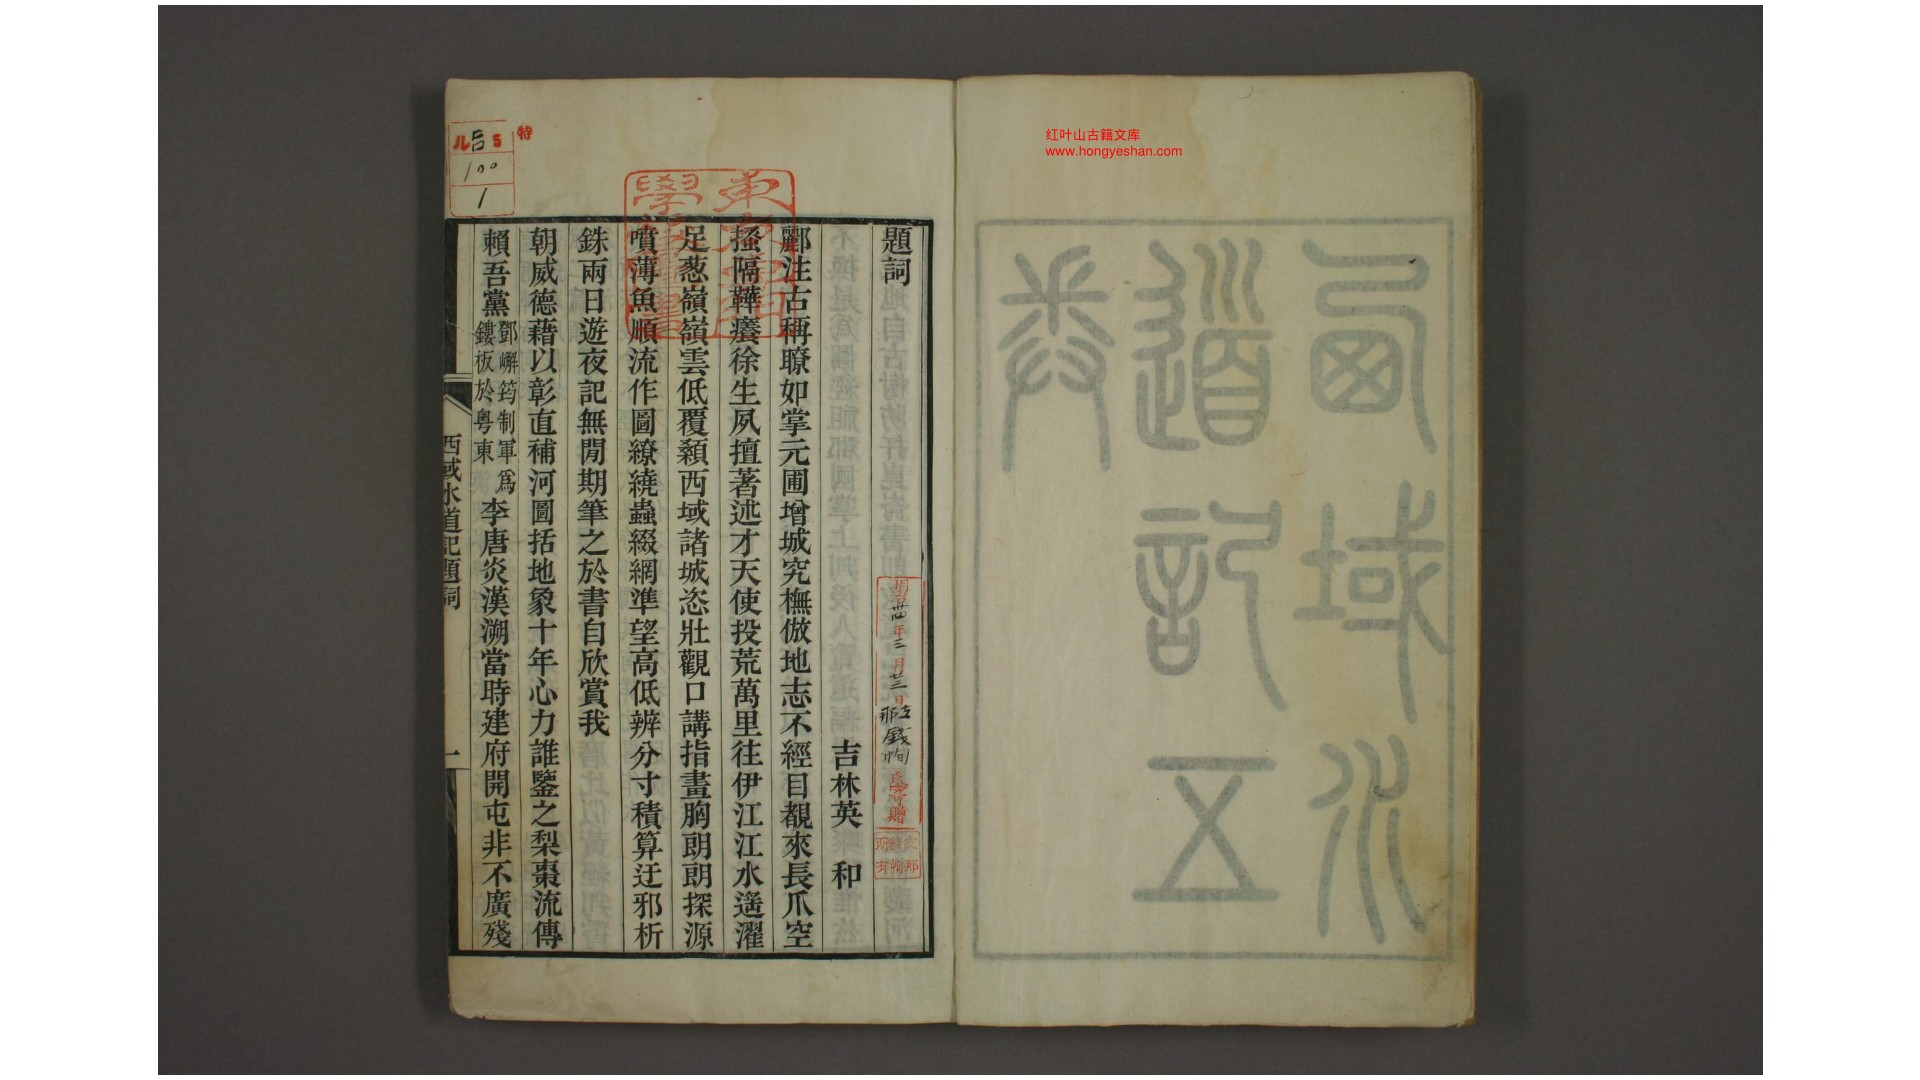 红叶山古籍文库
www.hongyeshan.com
西域水
道記五
卷
題詞
吉林英和
酈注古稱瞭如掌元圃增城究橅倣地志不經目覩來長爪空
搔隔鞾癢徐生夙擅著述才天使投荒萬里往伊江江水遙濯
足葱嶺嶺雲低覆顙西域諸城恣壯觀口講指畫胸朗朗探源
噴薄魚順流作圖繚繞蟲綴網準望高低辨分寸積算迂邪析
銖兩日遊夜記無閒期筆之於書自欣賞我
朝威德藉以彰直補河圖括地象十年心力誰鑒之梨棗流傳
賴吾黨鄧嶰筠制軍爲鏤板於粤東李唐炎漢溯當時建府開屯非不廣殘
西域水道記題詞
一
特
ル 5
100
1
年三月廿三日
贈
所有